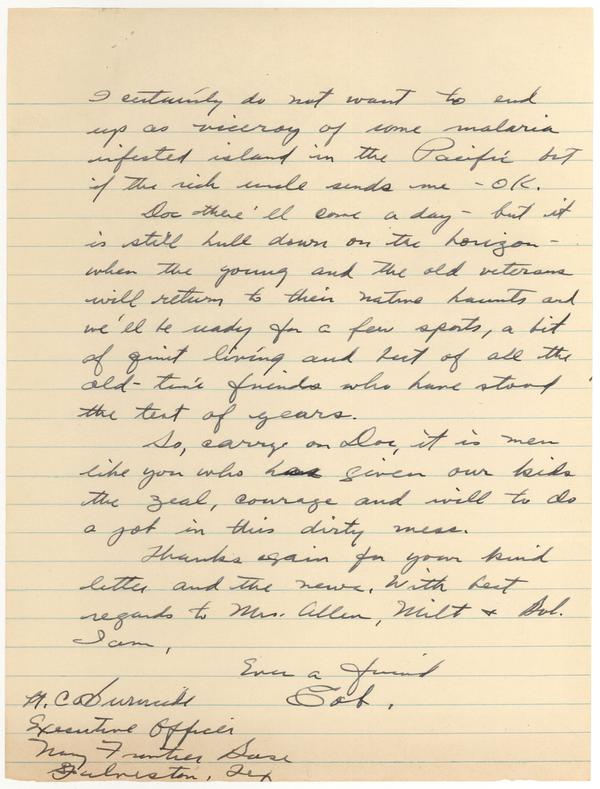 I certainly do not want to end
up as viceroy of some malaria
infested island in the Pacific but
if the rich uncle sends me - OK.
Doc there'll come a day - but it
is still hull down on the horizon -
when the young and the old veterans
will return to their native haunts and
we'll be ready for a few sports, a bit
of quiet living and best of all the
old-time friends who have stood
the test of years.
So, carry on Doc, it is men
like you who have given our kids
the zeal, courage and will to do
a job in this dirty mess.
Thanks again for your kind
letter and the news. With best
regards to Mrs. Allen, Milt & Bob.
I am,
Ever a friend
Cob.
H. C.
Executive Officer
Navy Frontier Base
Galveston, Tex